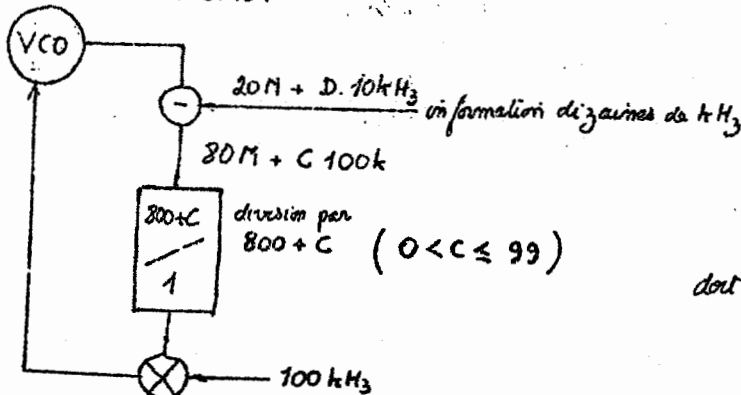 VCO
20M + D. 10kH₃
-
information dizaines de kH₃
80M + C 100k
800+C
1
division par
800 + C ( 0 < C ≤ 99 )
dout
100 kH₃